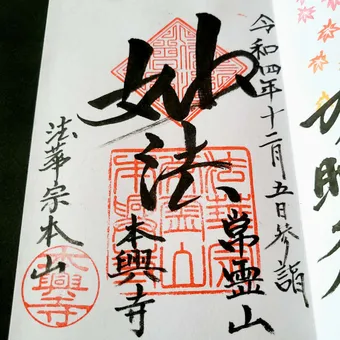 令和四年十二月五日参詣
妙法
常霊山
本興寺
法華宗本山
本興寺